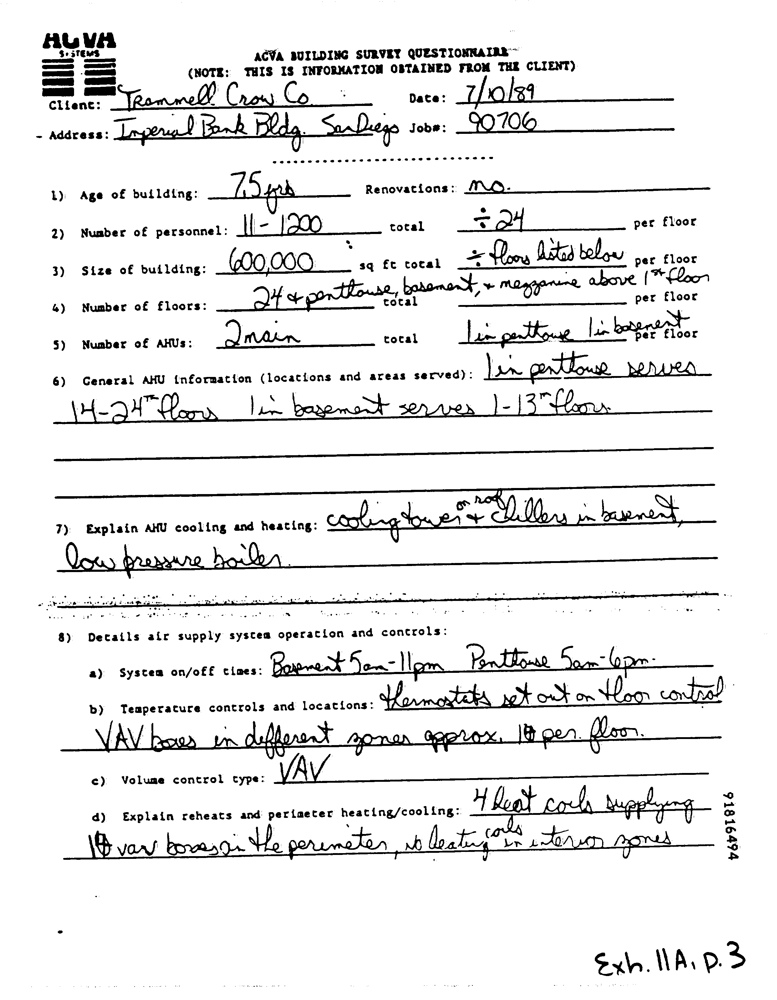 ACVA
SYSTEMS
ACVA BUILDING SURVEY QUESTIONNAIRE
(NOTE: THIS IS INFORMATION OBTAINED FROM THE CLIENT)
Client: Trammell Crow Co Date: 7/10/89
Address: Imperial Bank Bldg. San Diego Job#: 90706
1) Age of building: 7.5 yrs Renovations: no.
2) Number of personnel: 11-1200 total ÷ 24 per floor
3) Size of building: 600,000 sq ft total ÷ floors listed below per floor
4) Number of floors: 24 + penthouse, basement, + mezzanine above 1st floor total per floor
5) Number of AHUs: 2 main total 1 in penthouse 1 in basement per floor
6) General AHU information (locations and areas served): 1 in penthouse serves
14-24th floors 1 in basement serves 1-13th floors.
7) Explain AHU cooling and heating: cooling tower on roof + chillers in basement,
low pressure boiler.
8) Details air supply system operation and controls:
a) System on/off times: Basement 5am-11pm Penthouse 5am-6pm.
b) Temperature controls and locations: thermostats set out on floor control
VAV boxes in different zones approx. per floor.
c) Volume control type: VAV
d) Explain reheats and perimeter heating/cooling: 4 heat coils supplying
vav boxes on the perimeter, no heating coils in interior zones
91816494
Exh. 11A, p. 3